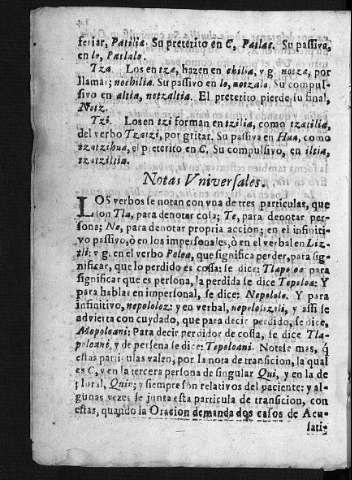 feriar, Patilia. Su preterito en C, Patlac. Su passiva,
en lo, Patlalo.
Tza. Los en tza, hazen en chilia, v. g. notza, por
llamar; nochilia. Su passivo en lo, notzalo. Su compul-
sivo en altia, notzaltia. El preterito pierde su final,
Notz.
Tzi. Los en tzi forman en tzilia, como tzatzilia,
del verbo Tzatzi, por gritar. Su passiva en Hua, como
tzatzihua, el preterito en C. Su compulsivo, en iltia,
tzatziltia.
Notas Vniversales.
LOS verbos se notan con vna de tres particulas, que
son Tla, para denotar cosa; Te, para denotar per-
sona; Ne, para denotar propria accion; en el infiniti-
vo passivo, ò en los impersonales, ò en el verbal en Liz-
tli: v. g. en el verbo Poloa, que significa perder, para sig-
nificar, que lo perdido es cosa: se dice: Tlapoloa: para
significar que es persona, la perdida se dice Tepoloa: Y
para hablar en impersonal, se dice: Nepololo. Y para
infinitivo, nepololoz: y en verbal, nepololiztli, y assi se
advierta con cuydado, que para decir perdido, se dice,
Mopoloani: Para decir perdidor de cosa, se dice Tla-
poloani, y de persona se dice: Tepoloani. Notase mas, q̃
estas particulas valen, por la nota de transicion, la qual
es C, y en la tercera persona de singular Qui, y en la de
plural, Quin; y siempre son relativos del paciente: y al-
gunas vezes se junta esta particula de transicion, con
estas, quando la Oracion demanda dos casos de Acu-
sati-